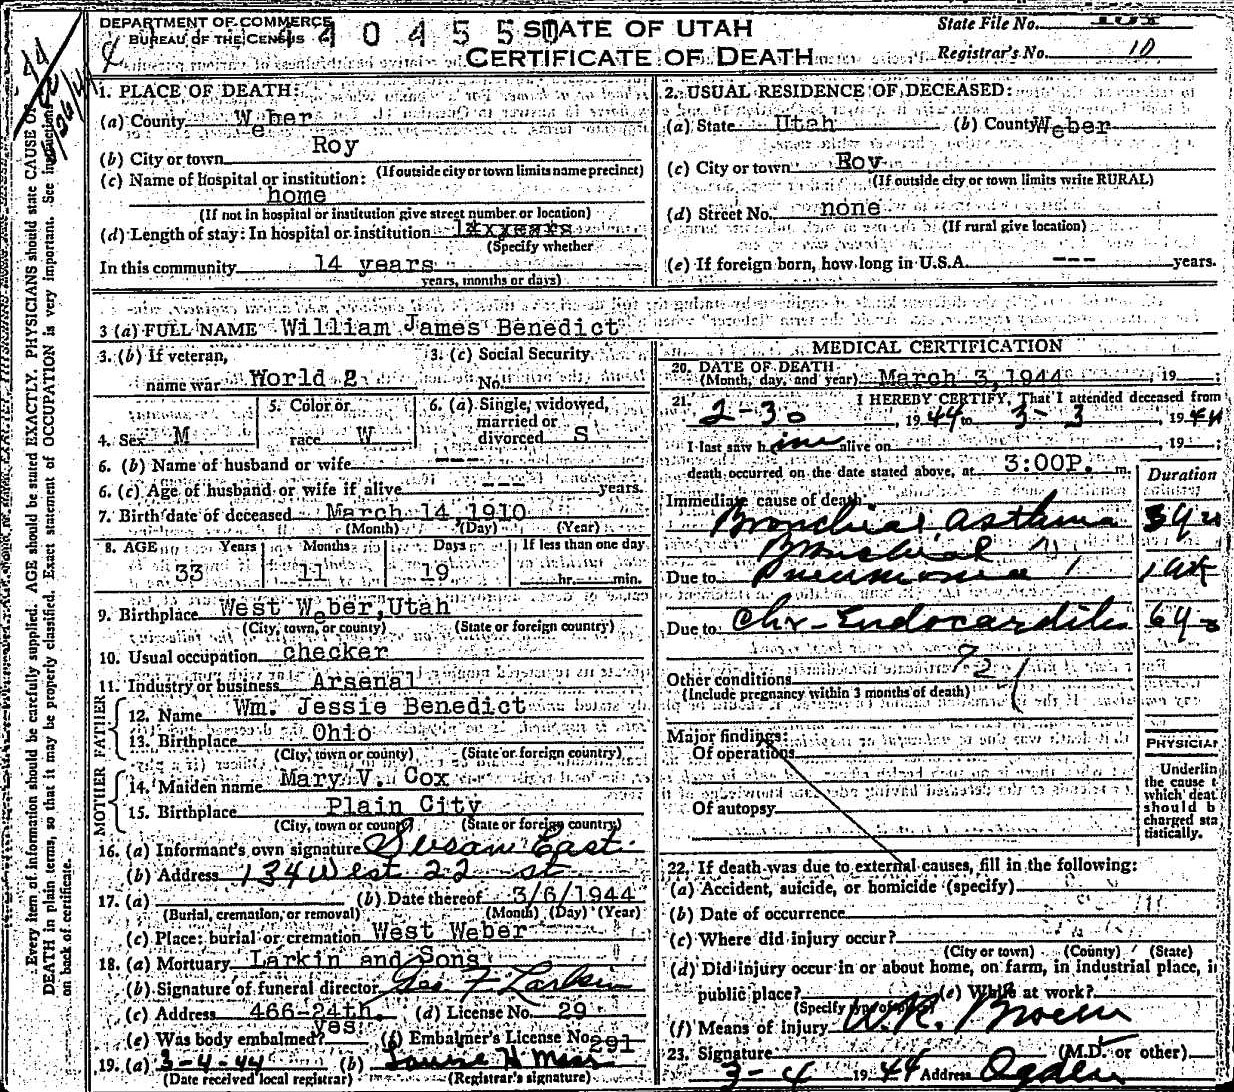 DEPARTMENT OF COMMERCE
BUREAU OF THE CENSUS
STATE OF UTAH
CERTIFICATE OF DEATH
State File No.
Registrar's No. 10
1. PLACE OF DEATH:
(a) County Weber
(b) City or town Roy
(If outside city or town limits name precinct)
(c) Name of hospital or institution:
home
(If not in hospital or institution give street number or location)
(d) Length of stay: In hospital or institution
(Specify whether
In this community 14 years
years, months or days)
2. USUAL RESIDENCE OF DECEASED:
(a) State Utah (b) County Weber
(c) City or town Roy
(If outside city or town limits write RURAL)
(d) Street No. none
(If rural give location)
(e) If foreign born, how long in U.S.A. --- years.
3 (a) FULL NAME William James Benedict
3. (b) If veteran,
name war World 2
3. (c) Social Security
No.
4. Sex M
5. Color or
race W
6. (a) Single, widowed,
married or
divorced S
6. (b) Name of husband or wife ---
6. (c) Age of husband or wife if alive --- years.
7. Birth date of deceased March 14 1910
(Month) (Day) (Year)
8. AGE Years Months Days If less than one day
33 11 19 hr. min.
9. Birthplace West Weber, Utah
(City, town, or county) (State or foreign country)
10. Usual occupation checker
11. Industry or business Arsenal
FATHER
12. Name Wm. Jessie Benedict
13. Birthplace Ohio
(City, town or county) (State or foreign country)
MOTHER
14. Maiden name Mary V. Cox
15. Birthplace Plain City
(City, town or county) (State or foreign country)
16. (a) Informant's own signature Susan East
(b) Address 134 West 22 st
17. (a) (b) Date thereof 3/6/1944
(Burial, cremation, or removal) (Month) (Day) (Year)
(c) Place: burial or cremation West Weber
18. (a) Mortuary Larkin and Sons
(b) Signature of funeral director Geo F Larkin
(c) Address 466-24th. (d) License No. 29
(e) Was body embalmed? yes (f) Embalmer's License No. 291
19. (a) 3-4-44 (b)
(Date received local registrar) (Registrar's signature)
MEDICAL CERTIFICATION
20. DATE OF DEATH
(Month, day, and year) March 3, 1944, 19 ;
21. I HEREBY CERTIFY, That I attended deceased from
2-30, 1944 to 3-3, 1944
I last saw him alive on , 19 ;
death occurred on the date stated above, at 3:00P. m.
Duration
Immediate cause of death
Bronchial asthma
Bronchial
Due to Pneumonia
Due to Chr-Endocarditis
Other conditions
(Include pregnancy within 3 months of death)
Major findings:
Of operations
Of autopsy
PHYSICIAN
Underlin
the cause t
which deat
should b
charged sta
tistically.
22. If death was due to external causes, fill in the following:
(a) Accident, suicide, or homicide (specify)
(b) Date of occurrence
(c) Where did injury occur?
(City or town) (County) (State)
(d) Did injury occur in or about home, on farm, in industrial place, i
public place? (e) While at work?
(Specify type of place)
(f) Means of injury
23. Signature (M.D. or other)
3-4 1944 Address Ogden
Every item of information should be carefully supplied. AGE should be stated EXACTLY. PHYSICIANS should state CAUSE OF
DEATH in plain terms, so that it may be properly classified. Exact statement of OCCUPATION is very important. See instructions
on back of certificate.